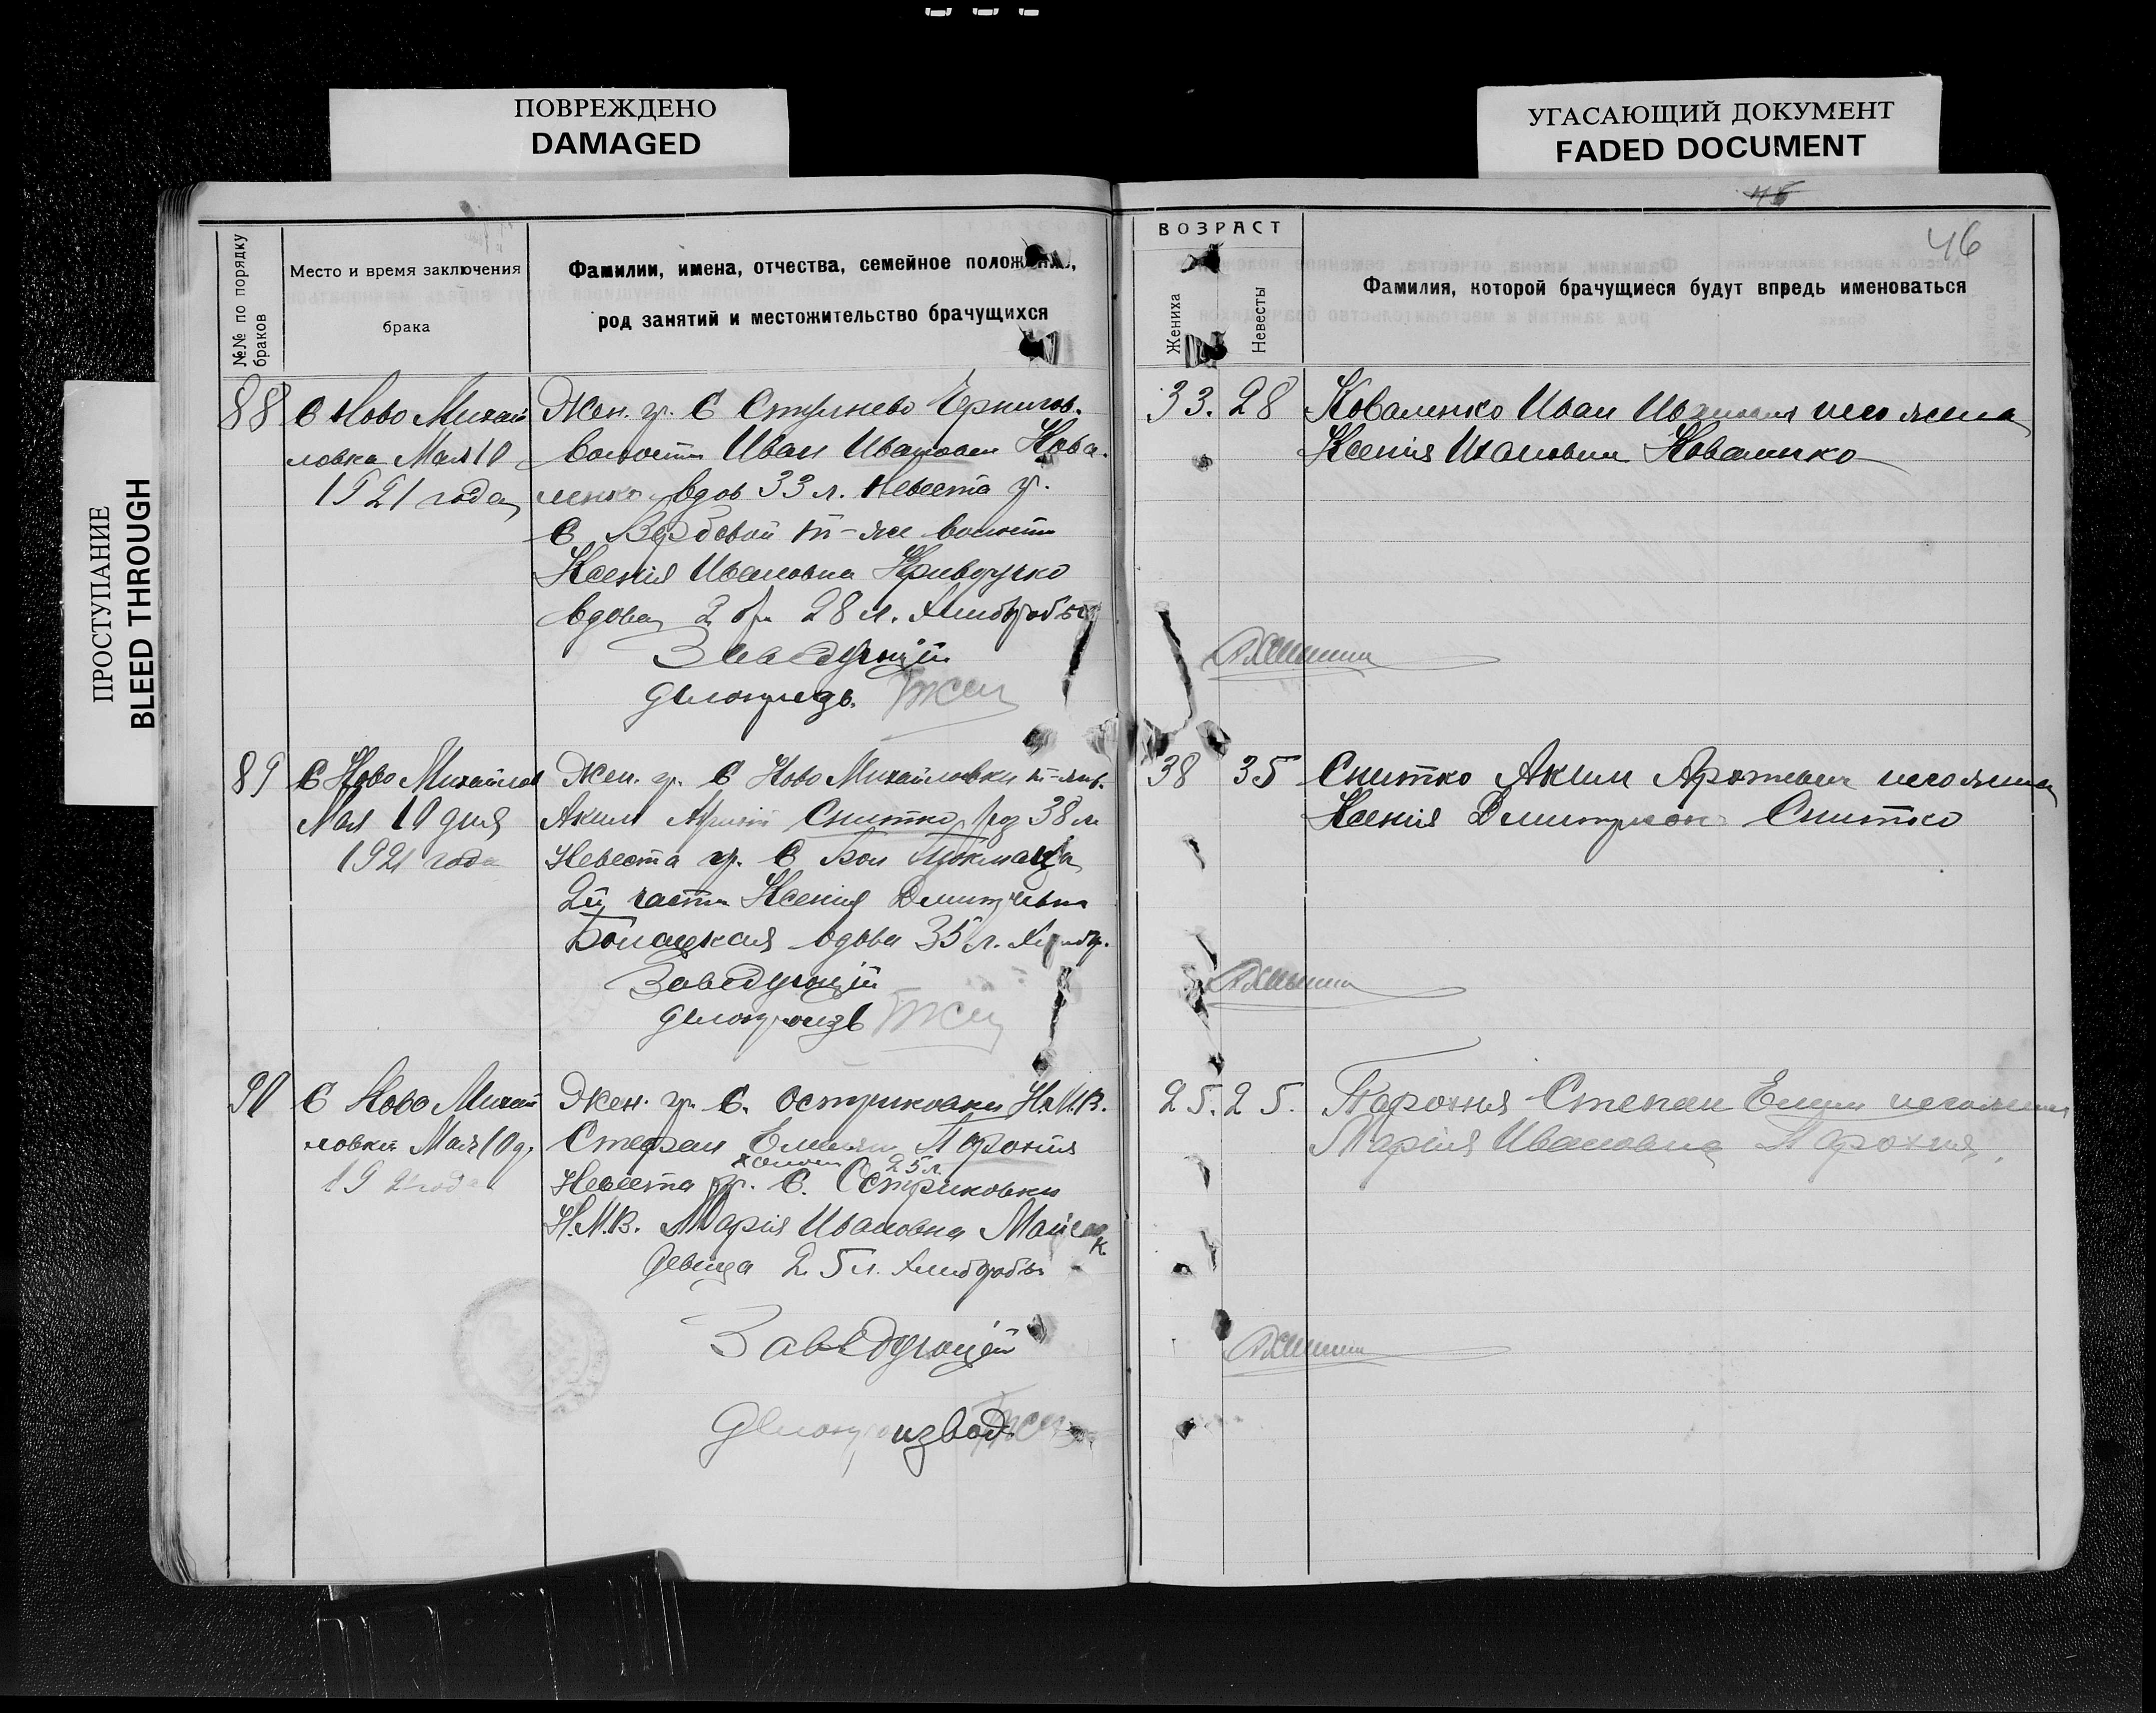 ПОВРЕЖДЕНО
DAMAGED
УГАСАЮЩИЙ ДОКУМЕНТ
FADED DOCUMENT
ПРОСТУПАНИЕ
BLEED THROUGH
46
№№ по порядку браков
Место и время заключения
брака
Фамилии, имена, отчества, семейное
род занятий и местожительство брачущихся
ВОЗРАСТ
Жениха
Невесты
Фамилия, которой брачущиеся будут впредь именоваться
88
С Ново Михай
ловка Мая 10
1921 года
Жен. гр. С
волости Иван Иванович Кова
ленко вдов 33 л. Невеста гр.
С т-же волости
Ксенія Ивановна
вдова 2 бр 28 л. Хлебороб
Заведующій
делопрозв.
33. 28
Коваленко Иван Иванович его жена
Ксенія Ивановна Коваленко
89
С Ново Михайлов
Мая 10 дня
1921 года
Жен. гр. С Ново Михайловки
Аким Снитко 38 л
Невеста гр. С Бол Токмака
2й части Ксенія
вдова 35 л.
Заведующій
делопроизв
38 35
Снитко Аким его жена
Ксенія Снитко
90
С Ново Михай
ловка Мая 10 д.
192 года
Жен. гр. С. Остриковки Н.М.В.
Стефан Парохня
холост 25 л
Невеста гр. С. Остриковки
Н.М.В. Марія Ивановна
девица 25 л. Хлебороб
Заведующій
Делопроизвод
25. 25.
Парохня Степан его жена
Марія Ивановна Парохня